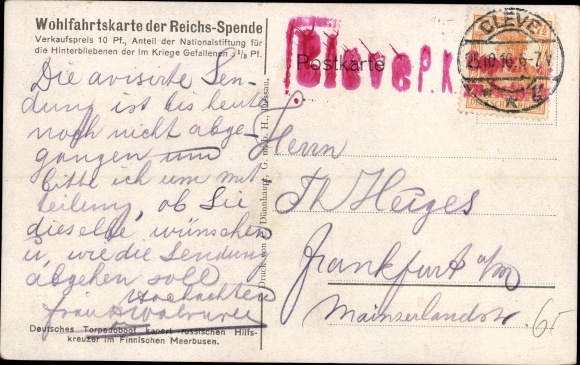 Wohlfahrtskarte der Reichs-Spende
Verkaufspreis 10 Pf., Anteil der Nationalstiftung für
die Hinterbliebenen der im Kriege Gefallenen 3⅓ Pf.
Die avisirte Sen-
dung ist bis heute
noch nicht abge-
gangen und
bitte ich um mit
teilung, ob Sie
dieselbe wünschen
u, wie die Sendung
abgehen soll
Frau
Deutsches Torpedoboot kapert russischen Hilfs-
kreuzer im Finnischen Meerbusen.
Druck von Dünnhaupt, G. m. b. H., Dessau.
Postkarte
Cleve P.K.
CLEVE
25.10.16. 6-7 V
Herrn
Th Heiges
Frankfurt a/m
Mainzerlandstr.
65